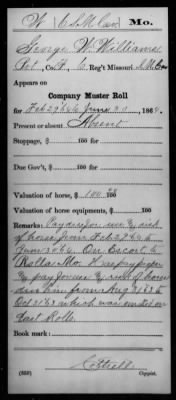 W | 6 S. M. Cav. | Mo.
George W. Williams
Pvt, Co. H, 6 Reg't Missouri S.M. Cav
Appears on
Company Muster Roll
for Feb 29 to June 30, 1864.
Present or absent Absent
Stoppage, $ 100 for
Due Gov't, $ 100 for
Valuation of horse, $ 100.00 100
Valuation of horse equipments, $ 100
Remarks: Pay due for use & risk
of horse from Feb 29 64 to
June 30 64. On Escort to
Rolla Mo.
& pay for use & risk of horse
due him from Aug 31 63 to
Oct 31 63 which was omitted on
last Rolls.
Book mark:
Cottrell
(858) Copyist.